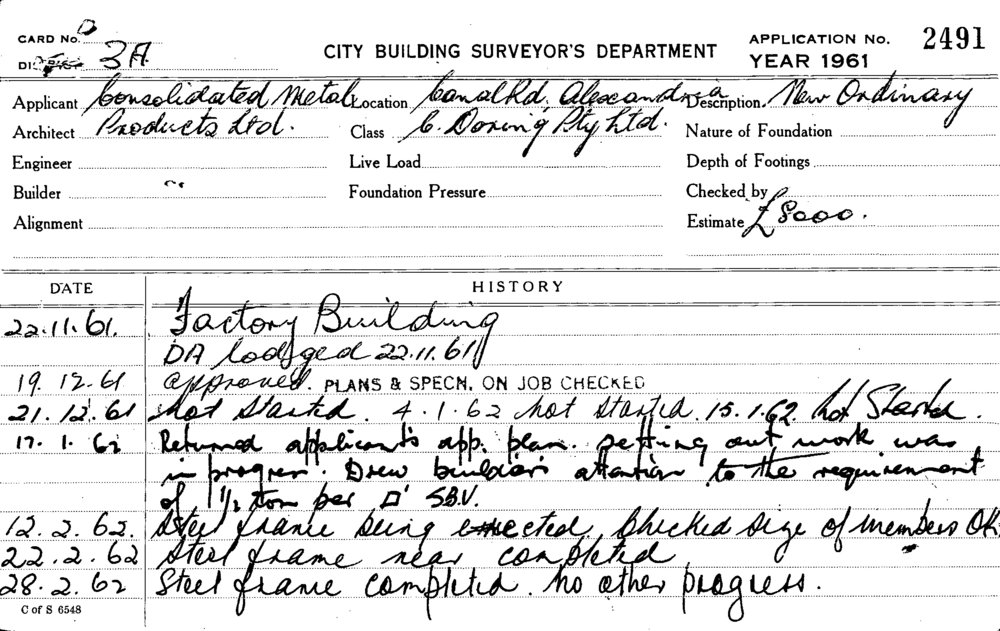 CARD No. D
CITY BUILDING SURVEYOR'S DEPARTMENT
APPLICATION No. 2491
3A
YEAR 1961
Applicant Consolidated Metal Location Canal Rd. Alexandria Description New Ordinary
Architect Products Ltd. Class C. Doring Pty Ltd. Nature of Foundation
Engineer Live Load Depth of Footings
Builder Foundation Pressure Checked by
Alignment Estimate £8000.
DATE HISTORY
22.11.61. Factory Building
DA lodged 22.11.61
19.12.61 approved. PLANS & SPECN. ON JOB CHECKED
21.12.61 Not Started. 4.1.62 not started. 15.1.62. Not Started.
17.1.62 Returned applicant's app. plan. setting out work was
in progress. Drew builder's attention to the requirement
of 1½ ton per □' S.B.V.
12.2.62. Steel frame being erected, Checked size of members OK.
22.2.62 Steel frame near completed
28.2.62 Steel frame completed. No other progress.
C of S 6548